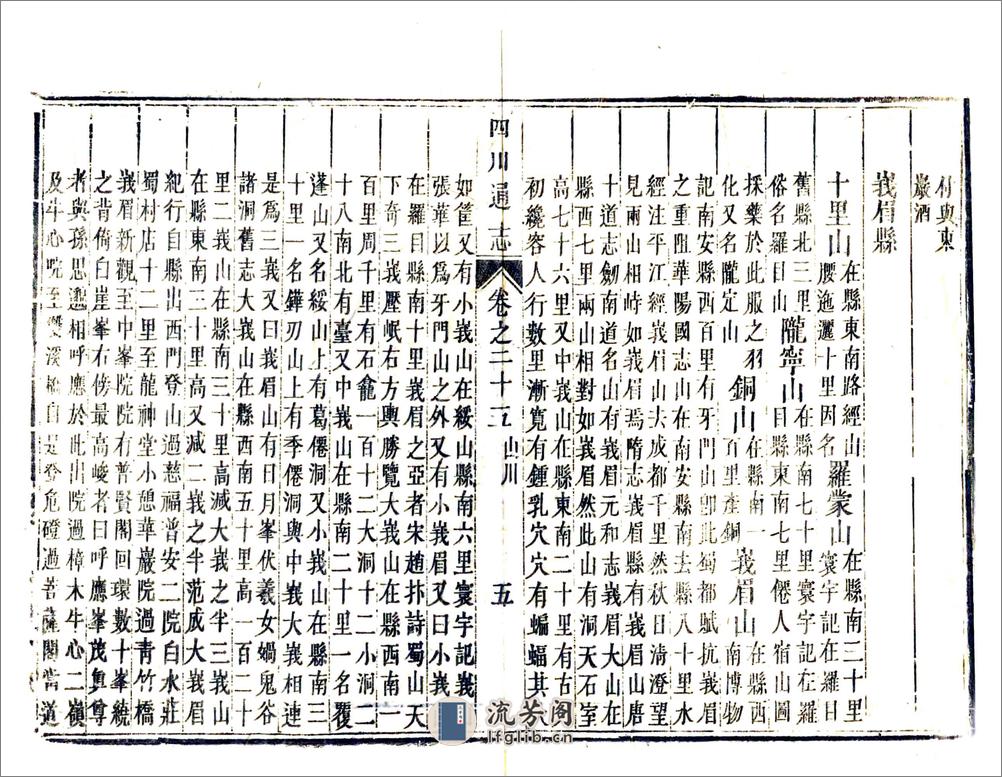 付與東
巖酒
峩眉縣
十里山 在縣東南路經山
腰迤邐十里因名 羅蒙山 在縣南三十里
寰宇記在羅日
舊縣北三里
俗名羅目 隴寧山 在縣南七十里寰宇記在羅
目縣東南七里僊人宿山圖
採藥於此服之羽
化又名隴定山 銅山 在縣南一
百里產銅 峩眉山 在縣西
南博物
記南安縣西百里有牙門山卽此蜀都賦抗峩眉
之重阻華陽國志山在南安縣南去縣八十里水
經注平江經峩眉山去成都千里然秋日淸澄望
見兩山相峙如峩眉焉隋志峩眉縣有峩眉山唐
十道志劒南道名山有峩眉元和志峩眉大山在
縣西七里兩山相對如峩眉然此山有洞天石室
高七十六里又中峩山在縣東南二十里有古穴
初纔容人行數里漸寬有鍾乳穴穴有蝙蝠其
四川通志 卷之二十三 山川 五
如筐又有小峩山在綏山縣南六里寰宇記峩
張華以爲牙門山之外又有小峩眉又曰小峩
在羅目縣南十里峩眉之亞者宋趙抃詩蜀天
下奇三峩壓岷右方輿勝覽大峩山在縣西南一
百里周千里有石龕一百十二大洞十二小洞二
十八南北有臺又中峩山在縣南二十里一名覆
蓬山又名綏山上有葛僊洞又小峩山在縣南三
十里一名鏵刃山上有季僊洞與中峩大峩相連
是爲三峩又曰峩眉山有日月峯伏羲女媧鬼谷
諸洞舊志大峩山在縣西南五十里高一百二十
里二峩山在縣南三十里高減大峩之半三峩山
在縣東南三十里高又減二峩之半范成大峩眉
紀行自縣出西門登山過慈福普安二院白水莊
蜀村店十二里至龍神堂小憩華巖院過靑竹橋
峩眉新觀至中峯院院有普賢閣回環數十峯繞
之背倚白崖峯右傍最高峻者曰呼應峯茂眞尊
者與孫思邈相呼應於此出院過樟木牛心二嶺
及牛心院至雙溪橋自是登危磴過菩薩閣當道
流芳阁
lfglib.cn